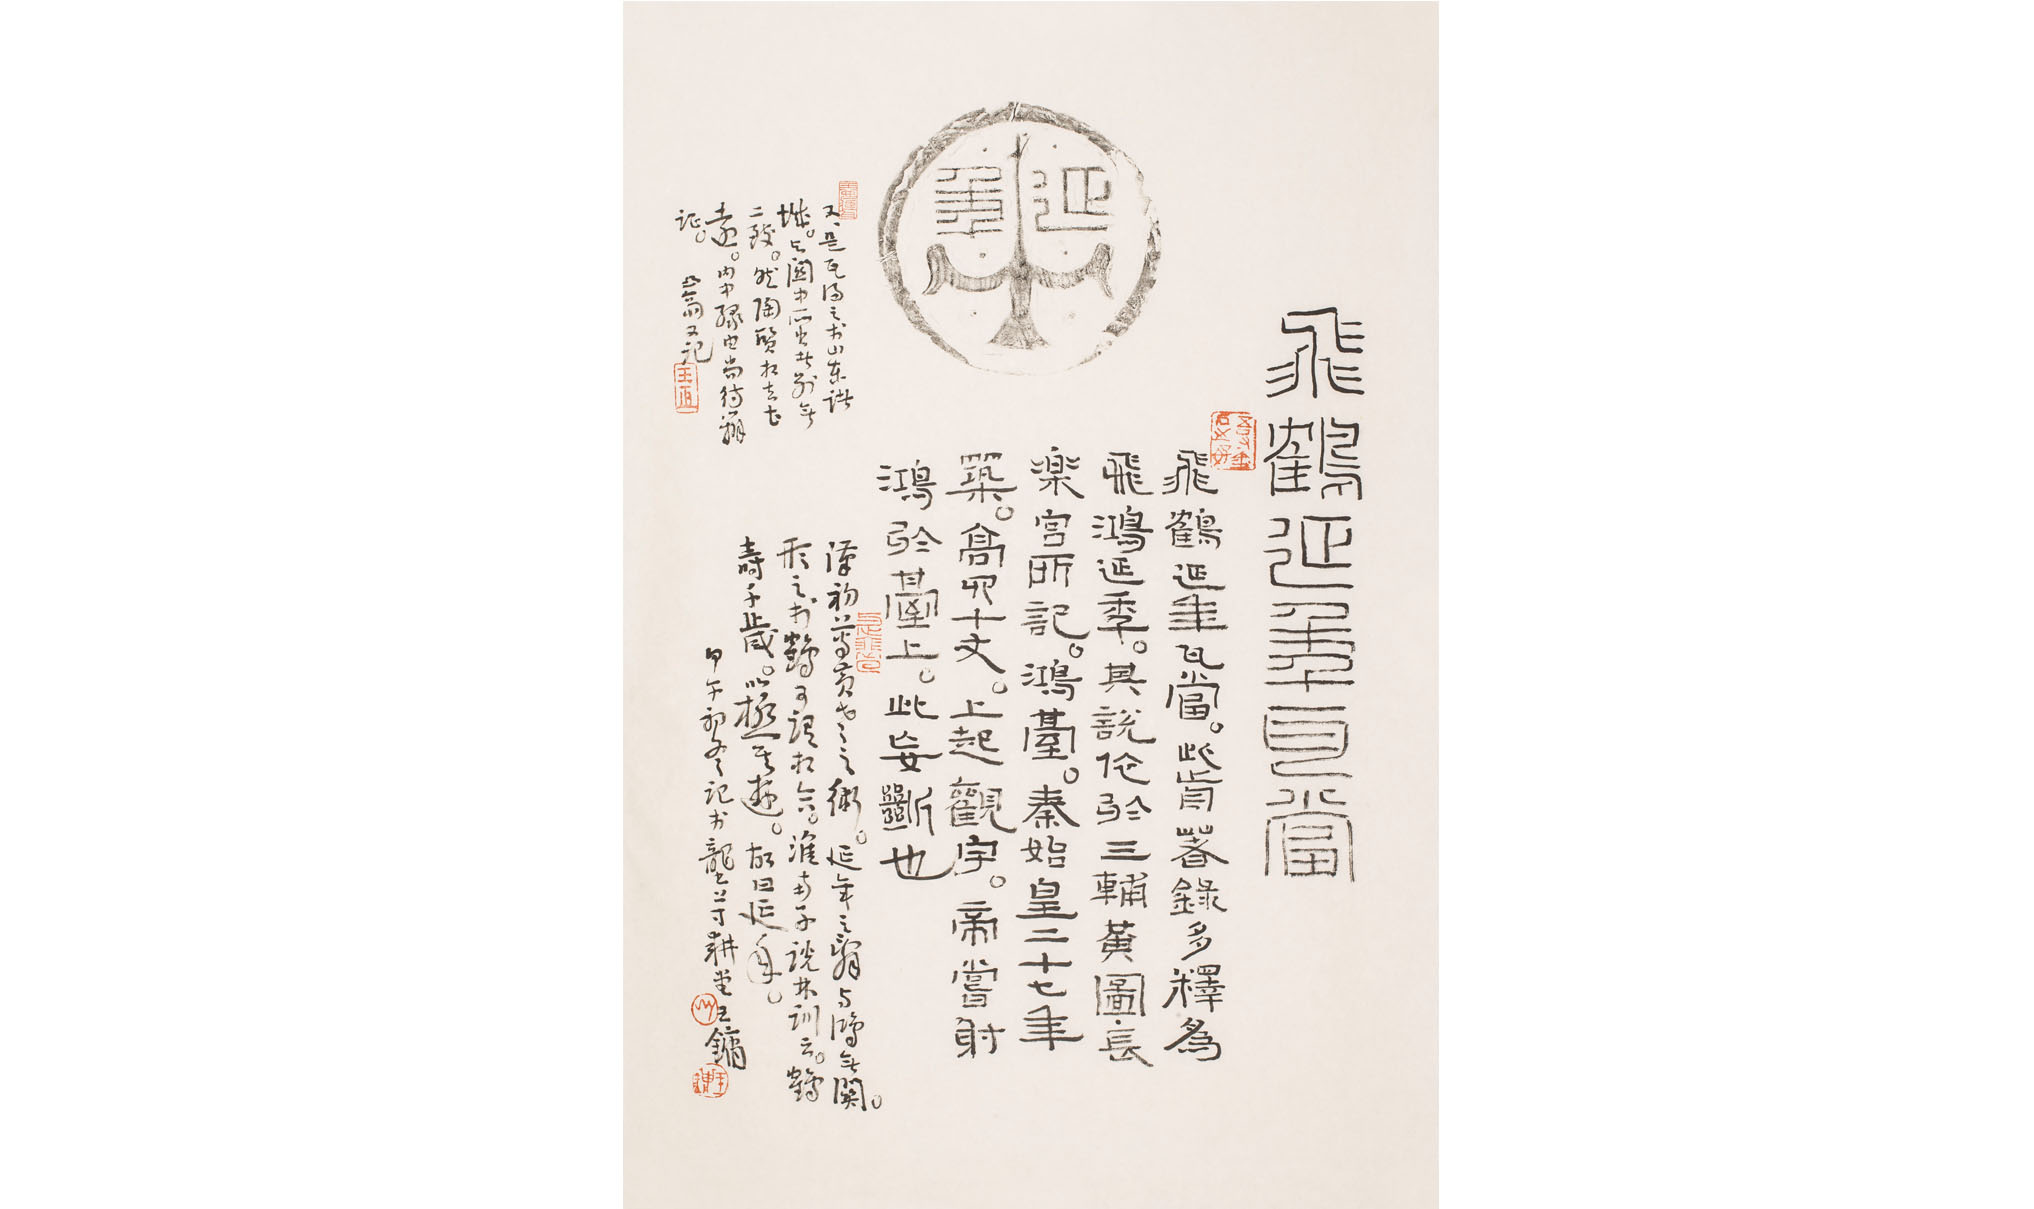 飛鶴延年瓦當
延年
飛鶴延年瓦當。此前著錄多釋為
飛鴻延季。其說作於三輔黃圖長
楽宮所記。鴻臺。秦始皇二十七年
築。高四十丈。上起觀宇。帝嘗射
鴻於臺上。此妄斷也
漢初尚黃老之術。延年之翳与鴻無関。
形之於鶴可謂相合。淮南子說林訓云。鶴
壽千歲。以極其游。故曰延年。
甲午初冬記於龍上寸耕堂王鏞
又。是瓦得之於山東諸
城。与關中所出者別無
二致。然陶質相去甚
遠。內中緣由尚待翔
証。
凸翁又記